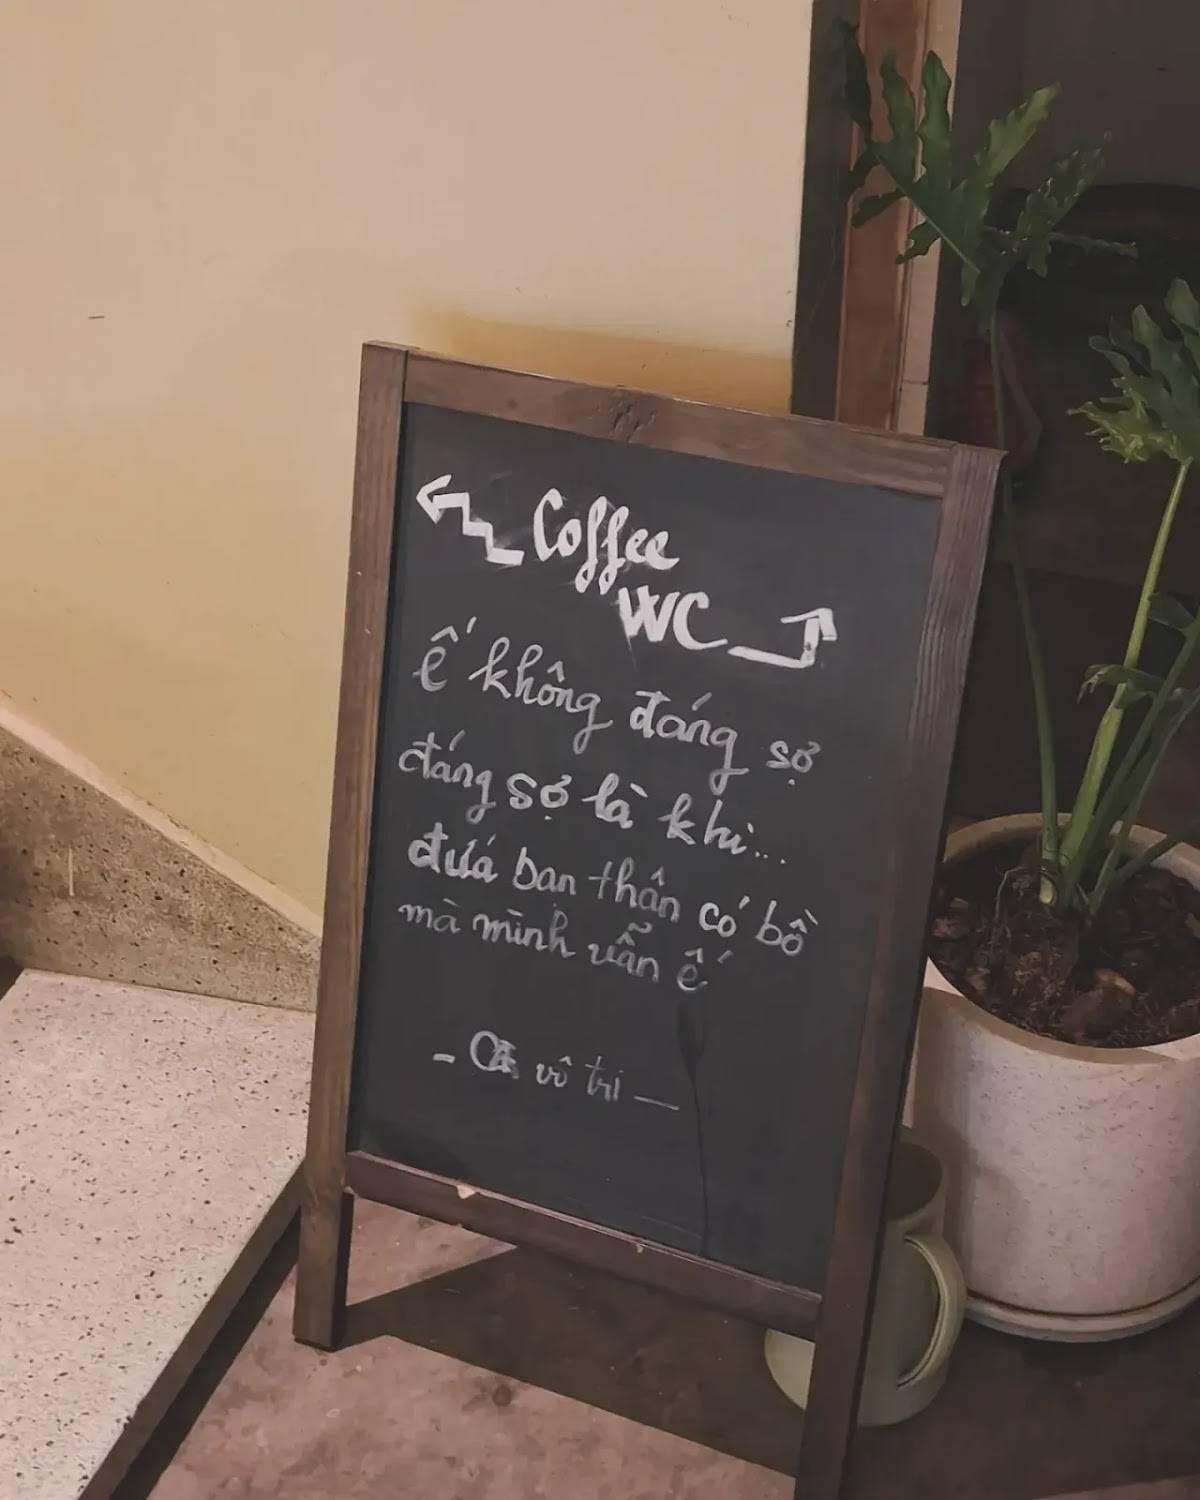 Coffee
WC
ế không đáng sợ
đáng sợ là khi...
đứá bạn thân có bồ
mà mình vẫn ế
vô tri —